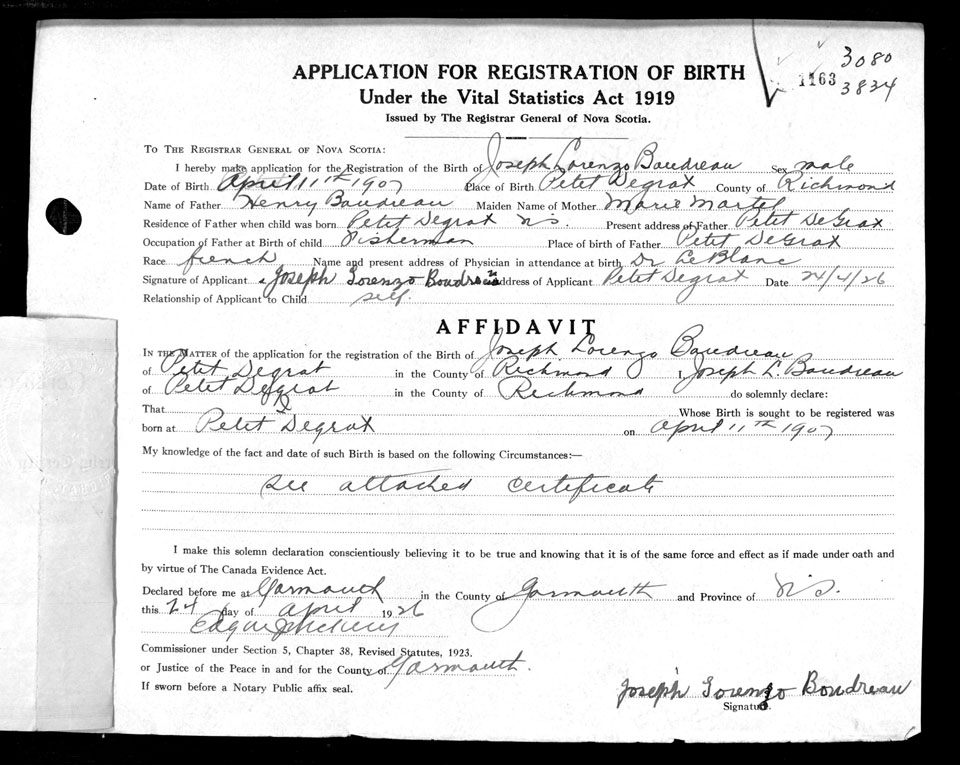 3080
1163
3834
APPLICATION FOR REGISTRATION OF BIRTH
Under the Vital Statistics Act 1919
Issued by The Registrar General of Nova Scotia.
To The Registrar General of Nova Scotia:
I hereby make application for the Registration of the Birth of Joseph Lorenzo Boudreau Sex male
Date of Birth April 11th 1907 Place of Birth Petit Degrat County of Richmond
Name of Father Henry Boudreau Maiden Name of Mother Marie Martel
Residence of Father when child was born Petit Degrat N.S. Present address of Father Petit DeGrat
Occupation of Father at Birth of child Fisherman Place of birth of Father Petit DeGrat
Race french Name and present address of Physician in attendance at birth Dr LeBlanc
Signature of Applicant Joseph Lorenzo Boudreau Address of Applicant Petit Degrat Date 24/4/26
Relationship of Applicant to Child self.
AFFIDAVIT
In the Matter of the application for the registration of the Birth of Joseph Lorenzo Boudreau
of Petit Degrat in the County of Richmond I, Joseph L. Boudreau
of Petit Degrat in the County of Richmond do solemnly declare:
That I Whose Birth is sought to be registered was
born at Petit Degrat on April 11th 1907
My knowledge of the fact and date of such Birth is based on the following Circumstances:—
see attached certificate
I make this solemn declaration conscientiously believing it to be true and knowing that it is of the same force and effect as if made under oath and
by virtue of The Canada Evidence Act.
Declared before me at Yarmouth in the County of Yarmouth and Province of N.S.
this 24 day of April 1926
Edgar
Commissioner under Section 5, Chapter 38, Revised Statutes, 1923.
or Justice of the Peace in and for the County of Yarmouth.
If sworn before a Notary Public affix seal.
Joseph Lorenzo Boudreau
Signature.